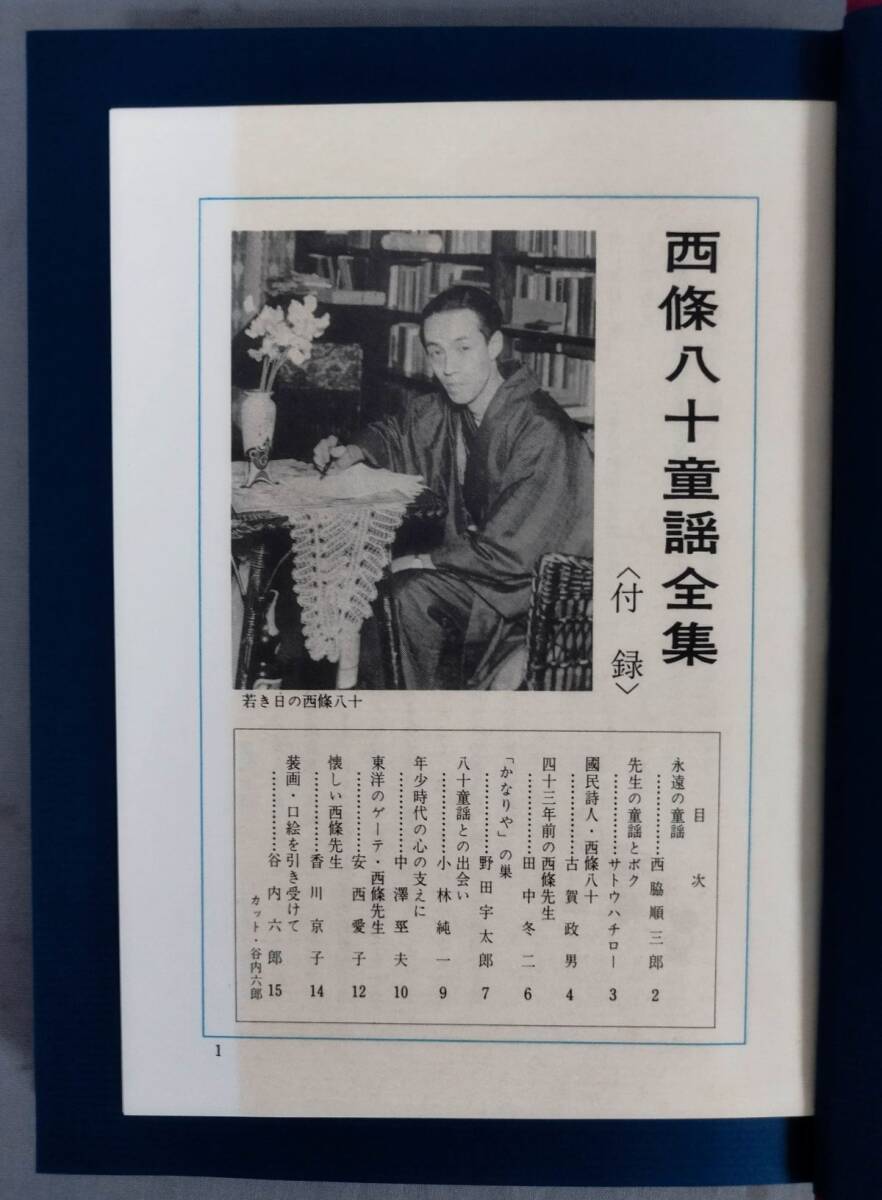 西條八十童謡全集
〈付録〉
若き日の西條八十
目次
永遠の童謡
…………西脇順三郎 2
先生の童謡とボク
…………サトウハチロー 3
國民詩人・西條八十
…………古賀政男 4
四十三年前の西條先生
…………田中冬二 6
「かなりや」の巣
…………野田宇太郎 7
八十童謡との出会い
…………小林純一 9
年少時代の心の支えに
…………中澤巠夫 10
東洋のゲーテ・西條先生
…………安西愛子 12
懐しい西條先生
…………香川京子 14
装画・口絵を引き受けて
…………谷内六郎 15
カット・谷内六郎
1